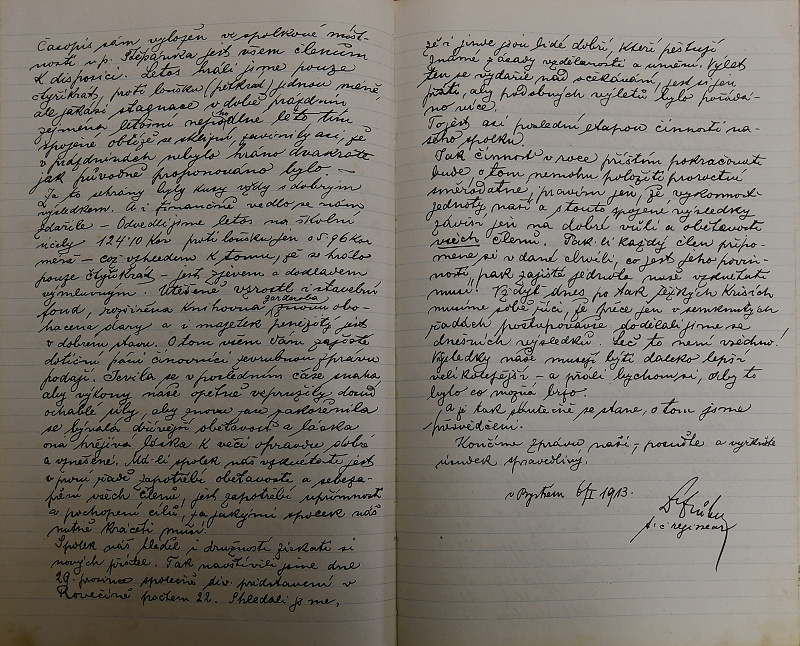 Časopis sám vyložen ve spolkové míst-
nosti u p. Štěpánka jest všem členům
k disposici. Letos hráli jsme pouze
čtyřikrát, proti loňsku (pětkrát) jednou méně,
ale jakási stagnace v době prázdnin
zejména letošní nezvodné léto, tím
spojené obtíže se sklizní, zavinily asi, že
v prázdninách nebylo hráno dvakráte
jak původně proponováno bylo. —
Za to sehrány byly kusy vždy s dobrým
výsledkem. A i finančně vedlo se nám
zdařile — Odvedli jsme letos na školní
účely 124·10 Kor proti loňsku jen o 5·96 Kor
méně — což vzhledem k tomu, že se hrálo
pouze čtyřikrát — jest zjevem a dodkladem
výmluvným. Utěšeně vzrostl i stavební
fond, rozšířena knihovna, garderoba znovu obo-
hacena dary a i majetek peněžitý jest
v dobrém stavu. O tom všem Vám zajisté
dotiční páni činovníci podrobnou zprávu
podají. Jevila se v posledním čase snaha
aby výkony naše opětně vzpružily dosud
ochablé síly, aby znovu zase zakořenila
se bývalá dřívější obětavost a láska
ona hřejivá láska k věci opravdu dobré
a vznešené. Má-li spolek náš vzkvétati jest
v prvé řadě zapotřebí obětavosti a sebeza-
pření všech členů, jest zapotřebí upřímnosti
a pochopení cílů, za jakými spolek náš
nutně kráčeti musí.
Spolek náš hleděl i družností získati si
nových přátel. Tak navštívili jsme dne
29. prosince společně div. představení v
Rovečíně počtem 22. Shledali jsme,
že i jinde jsou lidé dobří, kteří pěstují
známé zásady vzdělanosti a umění. Výlet
ten se vydařil nad očekávání, jest si jen
přáti, aby podobných výletů bylo pořádá-
no více.
To jest asi poslední etapou činnosti na-
šeho spolku.
Jak činnost v roce příštím pokračovati
bude o tom nemohu položiti proroctví
směrodatné, pravím jen, že výkonnost
jednoty naší a s touto spojené výsledky
závisí jen na dobré vůli a obětavosti
všech členů. Tak-li každý člen připo-
mene si v dané chvíli, co jest jeho povin-
ností, pak zajisté jednota naše vzkvétati
musí! Vždyť dnes po tak těžkých krisích
musíme sobě říci, že přece jen v semknutých
řadách postupováním dodělali jsme se
dnešních výsledků. Leč to není všechno!
Výsledky naše musejí býti daleko lepší
velikolepější — a přáli bychom si, aby to
bylo co možná brzo.
A že tak skutečně se stane, o tom jsme
přesvědčeni.
Končíme zprávu naši, posuďte a vyřkněte
úsudek spravedlivý.
v Bystrém 6/I 1913.
t. č. režisseur